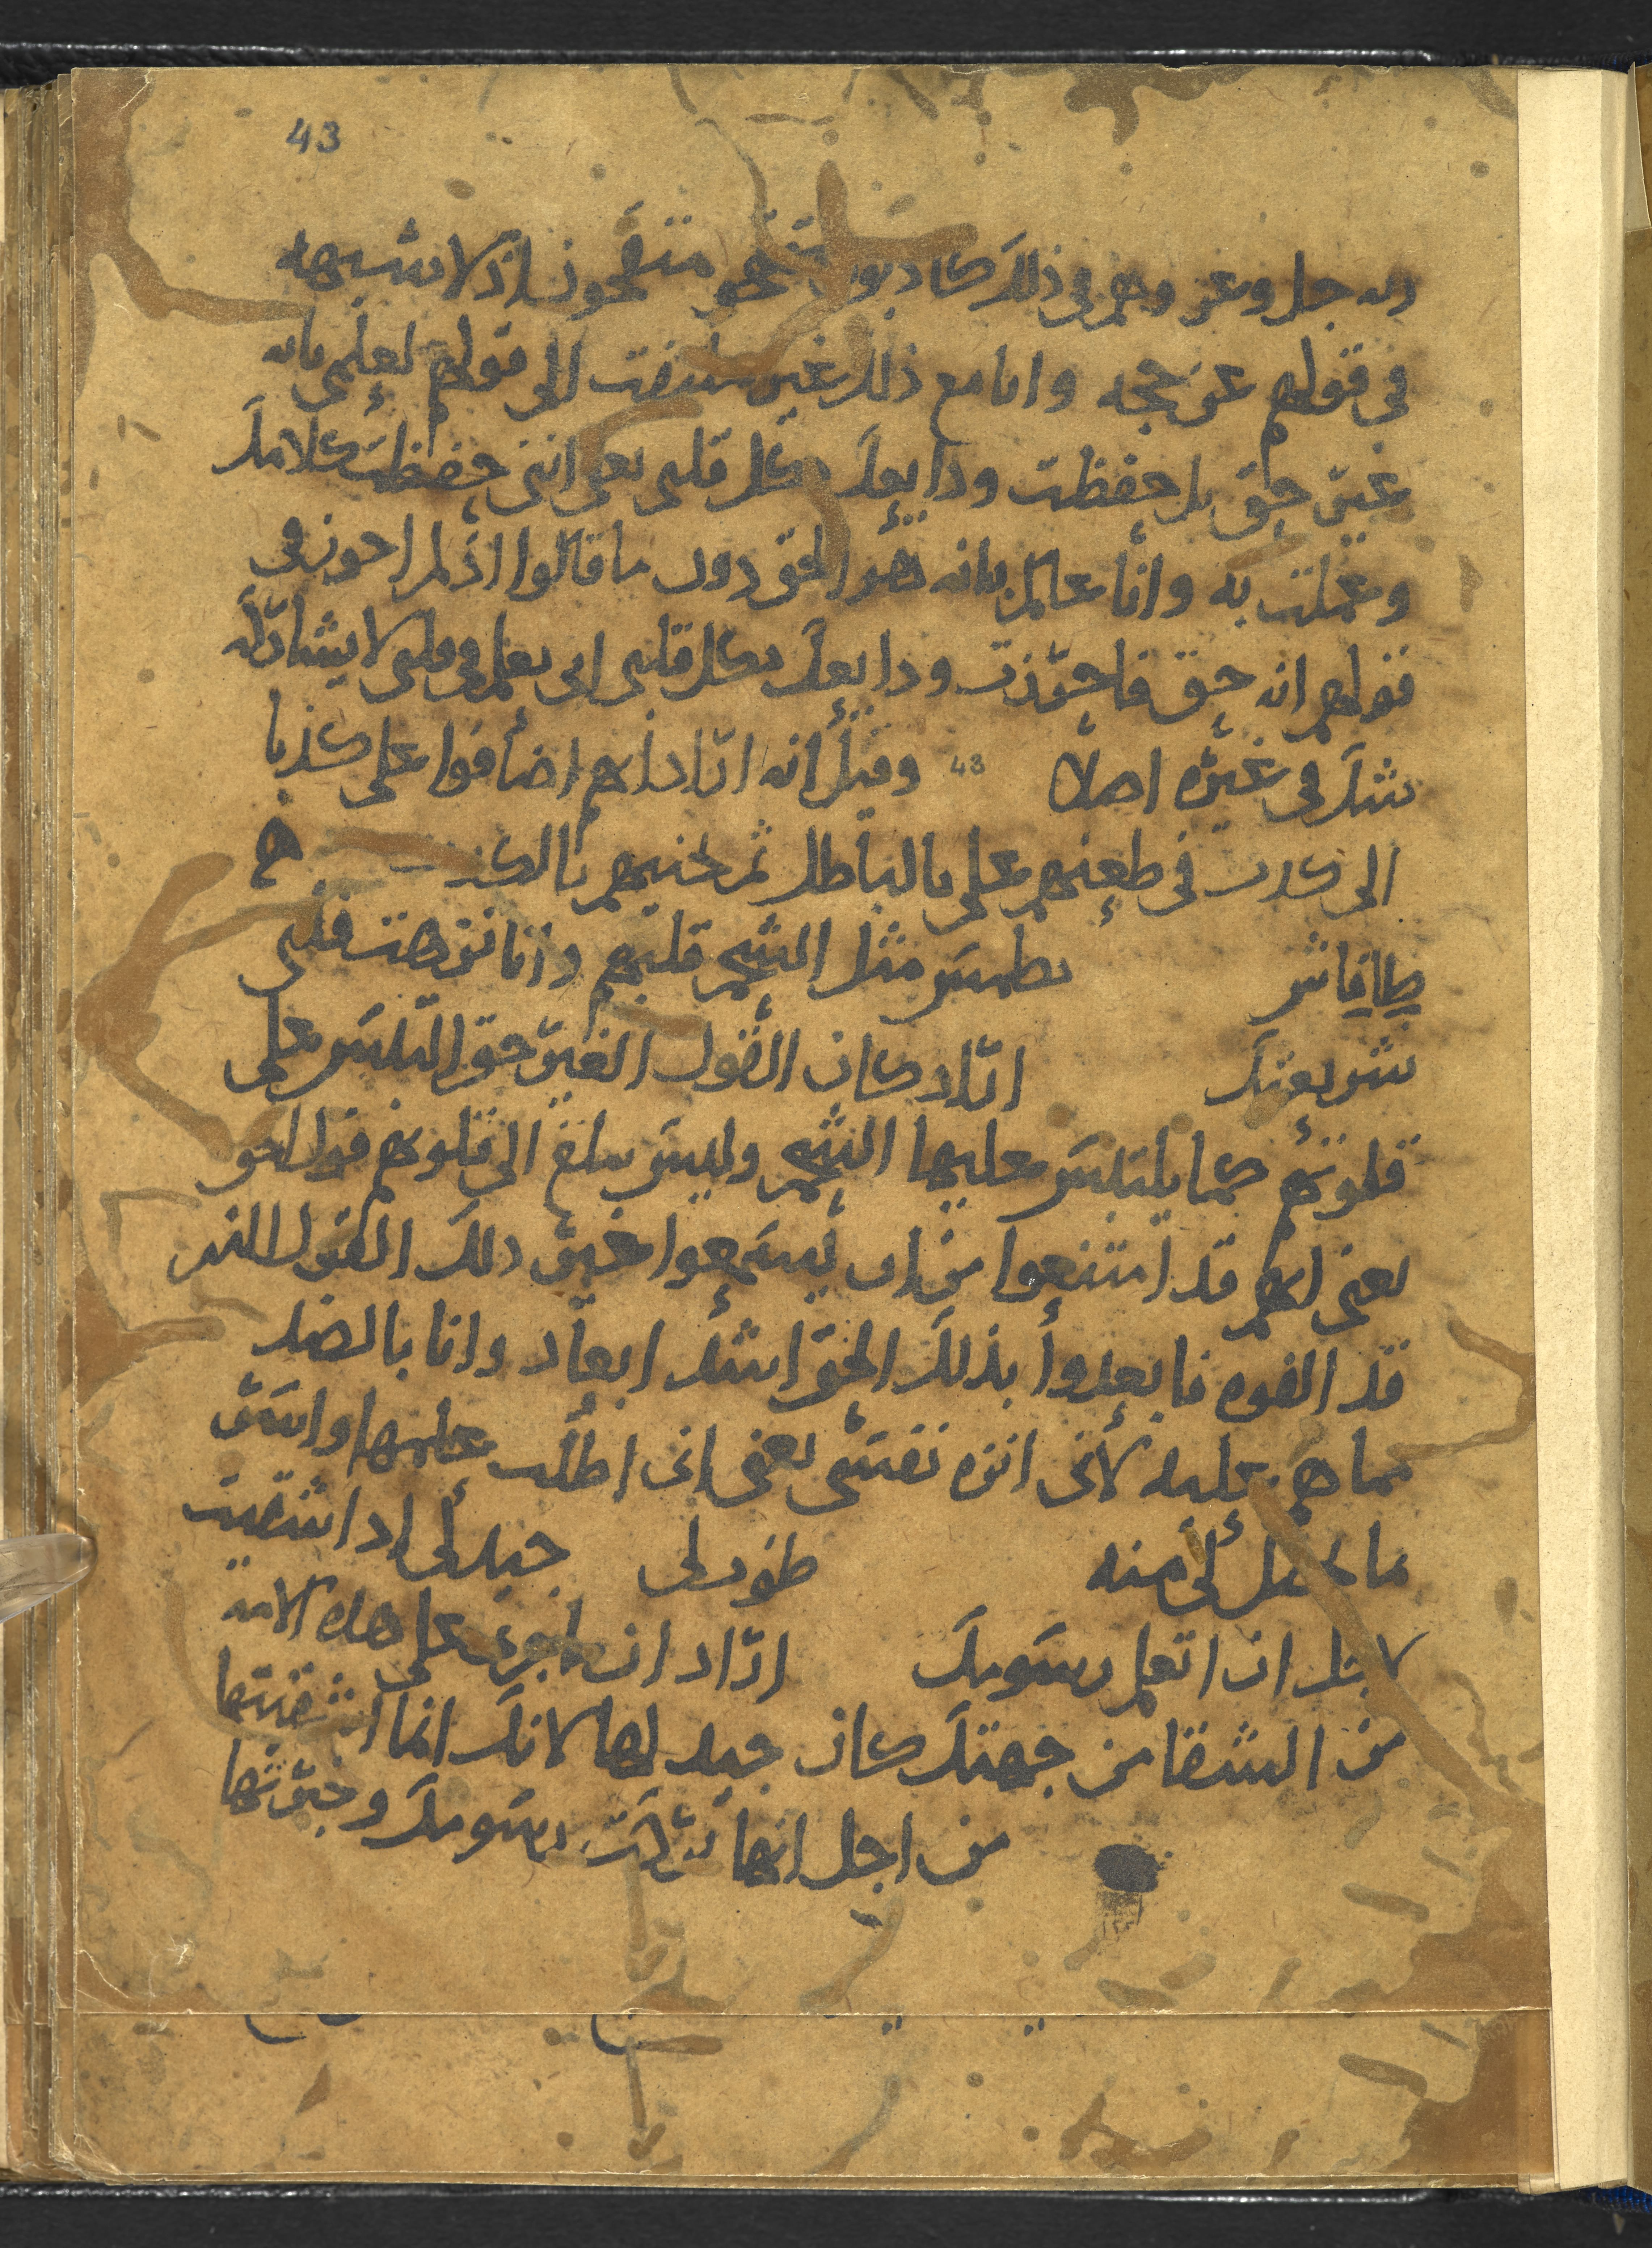 43
الله جل وعز وهم في ذلك كاذبون متقحمون اذ لا شبهه
في قولهم عن حجه وانا مع ذلك غير ملتفت الى قولهم لعلمي بانه
غير حق بل حفظت ودايعك بكل قلبي يعني انني حفظت كلامك
وعملت به وانا عالم بانه هو الحق دون ما قالوا اذ لم اجوز في
قولهم انه حق فاحترزت ودايعك بكل قلبي اي بعلم في قلبي لا يشارك
شك في غيره اصلا 43 وقيل انه اراد انهم اضافوا علي كذبا
الى كذب في طعنهم علي بالباطل ثم بالكذب
طافاش بطمس مثل الشحم قلبهم وانا نزهت قلبي
شريعتك اراد كان القول الغير حق التبس على
قلوبهم كما يلتبس عليها الشحم وليس يبلغ الى قلوبهم قول الحق
يعني انهم قد امتنعوا من ان يسمعوا غير ذلك القول الذي
قد الفوه فابعدوا بذلك الحق اشد ابعاد وانا بالضد
مما هم عليه لانى انزه نفسى يعني انى اطلب علمها واسر
ما لي منه طوب لي جيد لي اذ اشقيت
لاجل ان اتعلم رسومك اراد ان ما جرى على هذه الامه
من الشقا من جهتك كان جيد لها لانك انما اشقيتها
من اجل انها تركت رسومك وخبرتها